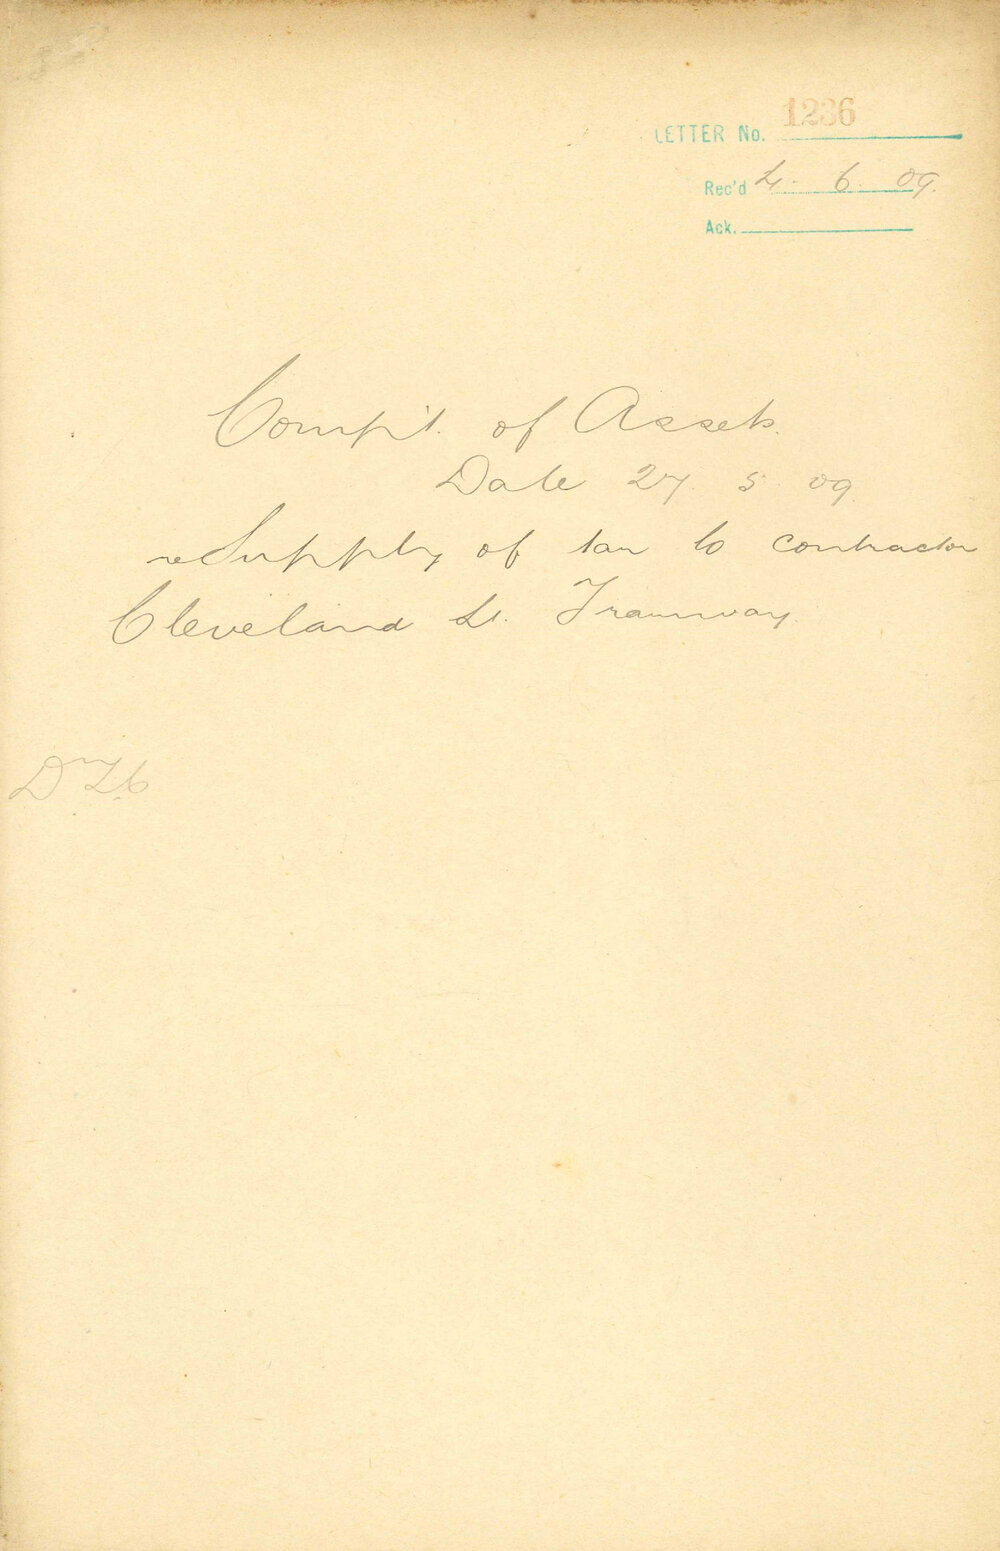 LETTER No. 1236
Rec'd 4. 6. 09.
Ack.
Compt. of Assets.
Date 27. 5. 09.
re Supply of tar to contractor
Cleveland St. Tramway.